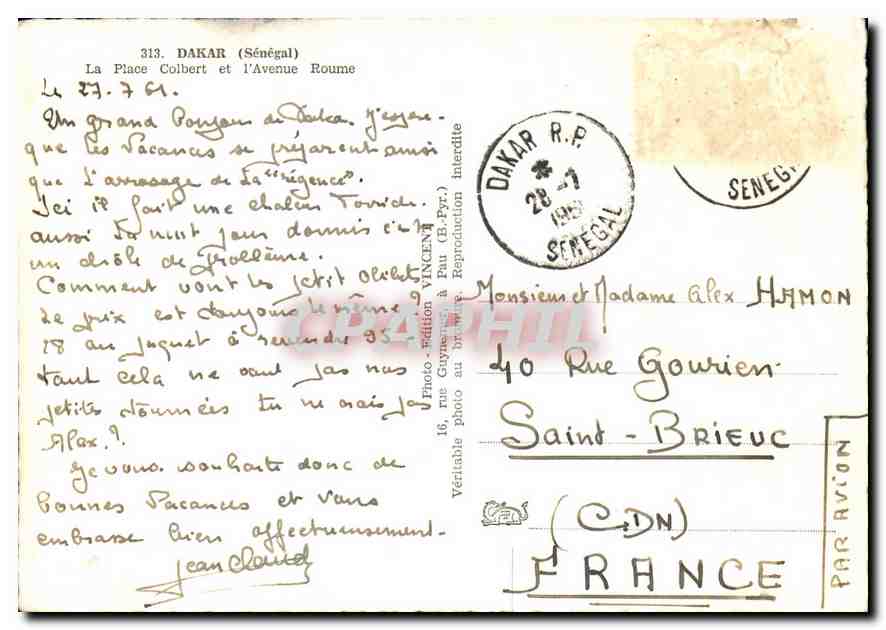 313. DAKAR (Sénégal)
La Place Colbert et l'Avenue Roume
Le 27.7.61.
Un grand bonjour de Dakar. J'espère
que les vacances se préparent ainsi
que l'arrosage de la "régence".
Ici il fait une chaleur torride.
aussi la nuit pour dormir c'est
un drôle de problème.
Comment vont les petit
Le prix est toujours le même?
18 au à revendre 95-
tout cela ne vaut pas nos
petites tournées tu ne crois pas
Alex.?
Je vous souhaite donc de
bonnes vacances et vous
embrasse bien affectueusement-
Jean Claude
Photo - Edition VINCENT
16, rue Guynemer à Pau (B.-Pyr.)
Véritable photo au bromure. Reproduction interdite
CPAPHIL
DAKAR R.P.
28 -7
1961
SENEGAL
SENEGAL
Monsieur et Madame Alex HAMON
40 Rue Gourien
SAINT-BRIEUC
(CDN)
FRANCE
PAR AVION